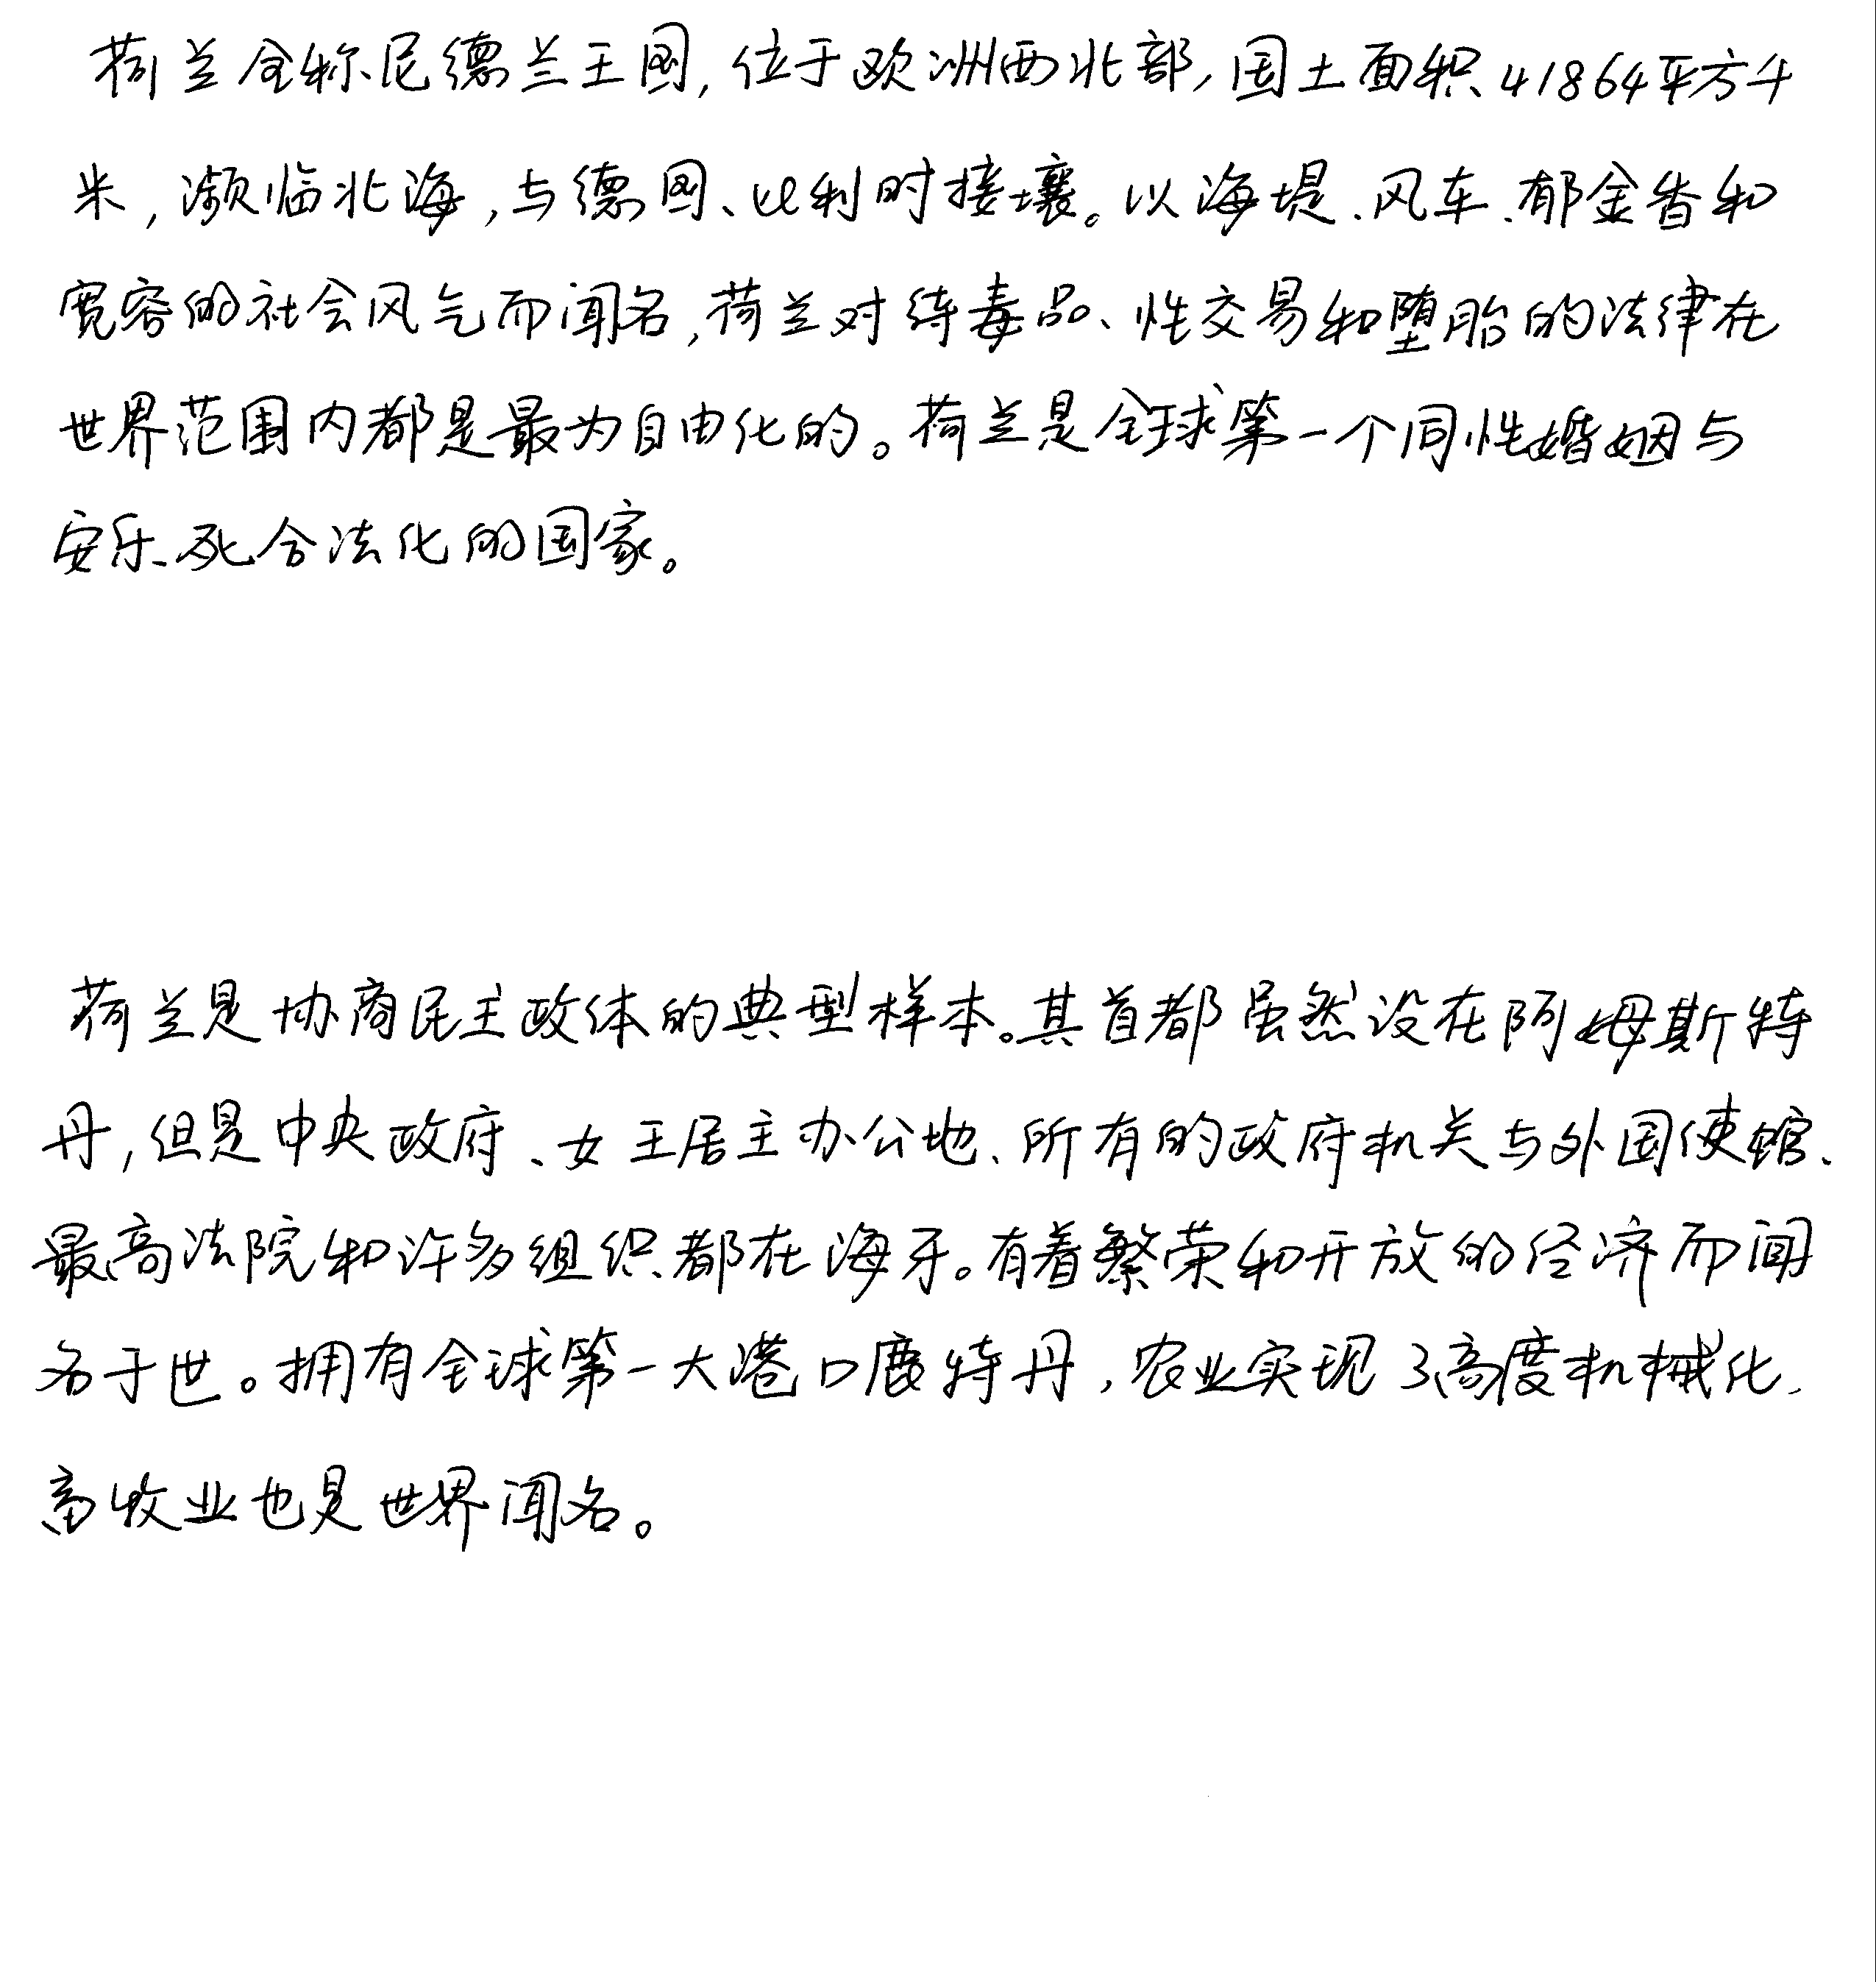 荷兰全称尼德兰王国,位于欧洲西北部,国土面积41864平方千
米,濒临北海,与德国、比利时接壤。以海堤、风车、郁金香和
宽容的社会风气而闻名,荷兰对待毒品、性交易和堕胎的法律在
世界范围内都是最为自由化的。荷兰是全球第一个同性婚姻与
安乐死合法化的国家。
荷兰是协商民主政体的典型样本。其首都虽然设在阿姆斯特
丹,但是中央政府、女王居主办公地、所有的政府机关与外国使馆、
最高法院和许多组织都在海牙。有着繁荣和开放的经济而闻
名于世。拥有全球第一大港口鹿特丹,农业实现了高度机械化,
畜牧业也是世界闻名。